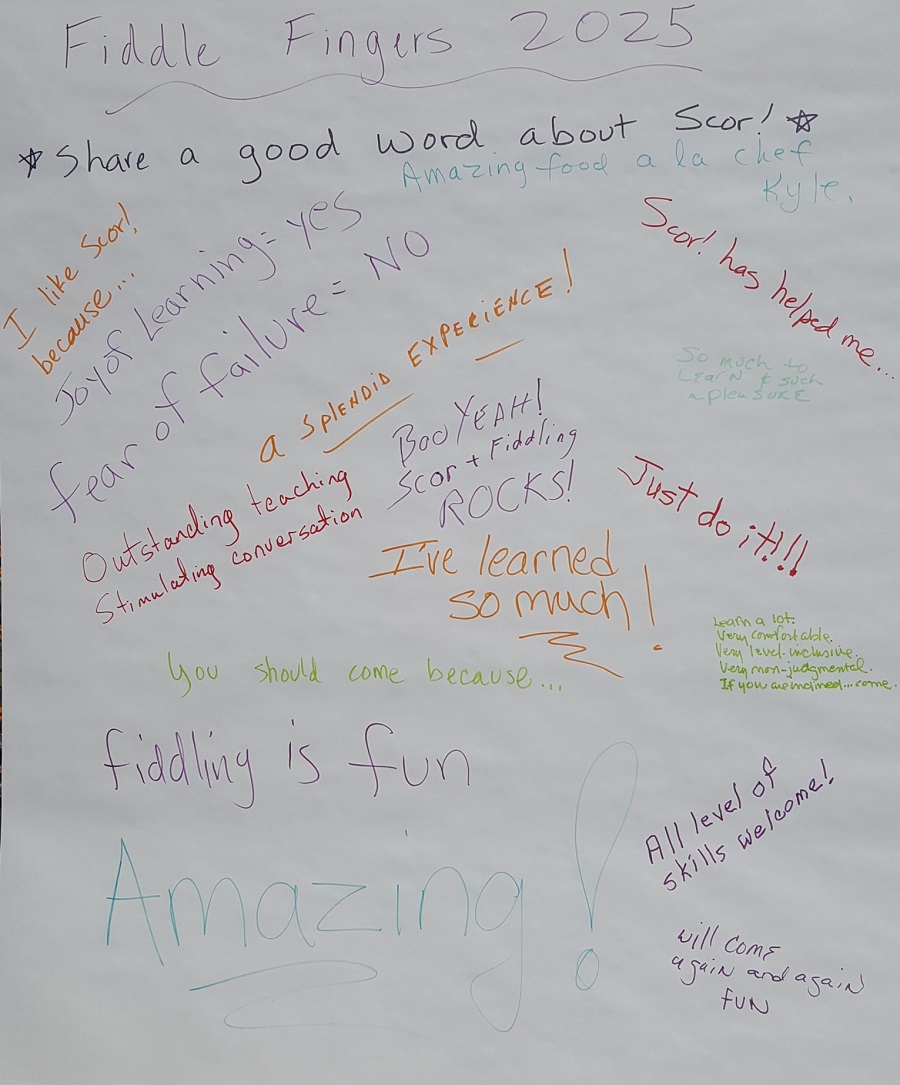 Fiddle Fingers 2025
☆ Share a good word about Scor! ☆
Amazing food a la chef
Kyle.
I like Scor!
because...
Joy of Learning = yes
fear of failure = NO
Scor! has helped me...
a SPLENDID EXPERIENCE!
So much to
LEARN & such
a pleasURE
BOO YEAH!
Scor + Fiddling
ROCKS!
Outstanding teaching
Stimulating conversation
Just do it!!!
I've learned
so much!
Learn a lot.
Very comfortable.
Very level-inclusive.
Very non-judgmental.
If you are inclined...come.
You should come because...
fiddling is fun
All level of
skills welcome!
Amazing!
will come
again and again
FUN